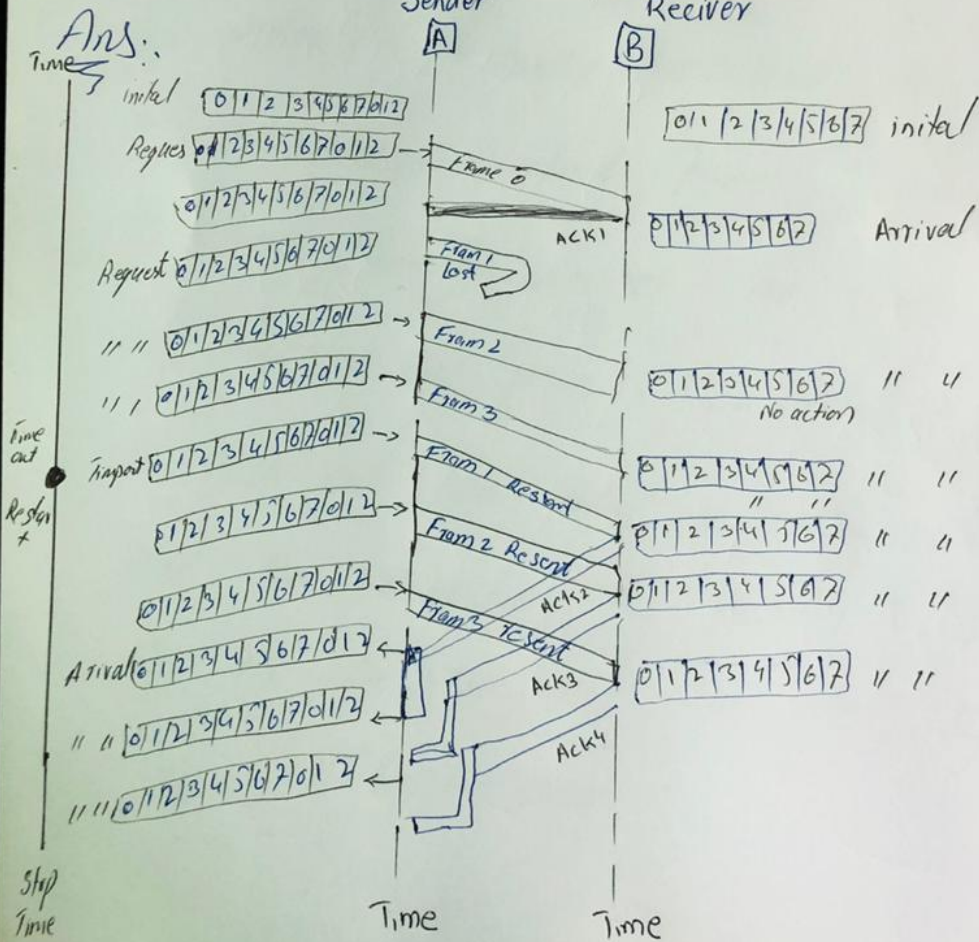 Sender Reciver
Ans:. A B
Time
inital 0 1 2 3 4 5 6 7 0 1 2
0 1 2 3 4 5 6 7 inital
Reques 0 1 2 3 4 5 6 7 0 1 2 Frame 0
0 1 2 3 4 5 6 7 0 1 2
ACK1 0 1 2 3 4 5 6 7 Arrival
Request 0 1 2 3 4 5 6 7 0 1 2 Fram 1
Lost
" " 0 1 2 3 4 5 6 7 0 1 2 Fram 2
" " 0 1 2 3 4 5 6 7 0 1 2 0 1 2 3 4 5 6 7 " "
No action
Fram 3
Time
out
0 1 2 3 4 5 6 7 0 1 2 Fram 1 Resent 0 1 2 3 4 5 6 7 " "
" "
0 1 2 3 4 5 6 7 0 1 2 Fram 2 Resent 0 1 2 3 4 5 6 7 " "
0 1 2 3 4 5 6 7 0 1 2 Ack2 0 1 2 3 4 5 6 7 " "
Fram 3 resent
Arival 0 1 2 3 4 5 6 7 0 1 2 Ack3 0 1 2 3 4 5 6 7 " "
" " 0 1 2 3 4 5 6 7 0 1 2 Ack4
" " 0 1 2 3 4 5 6 7 0 1 2
Stop
Time
Time Time